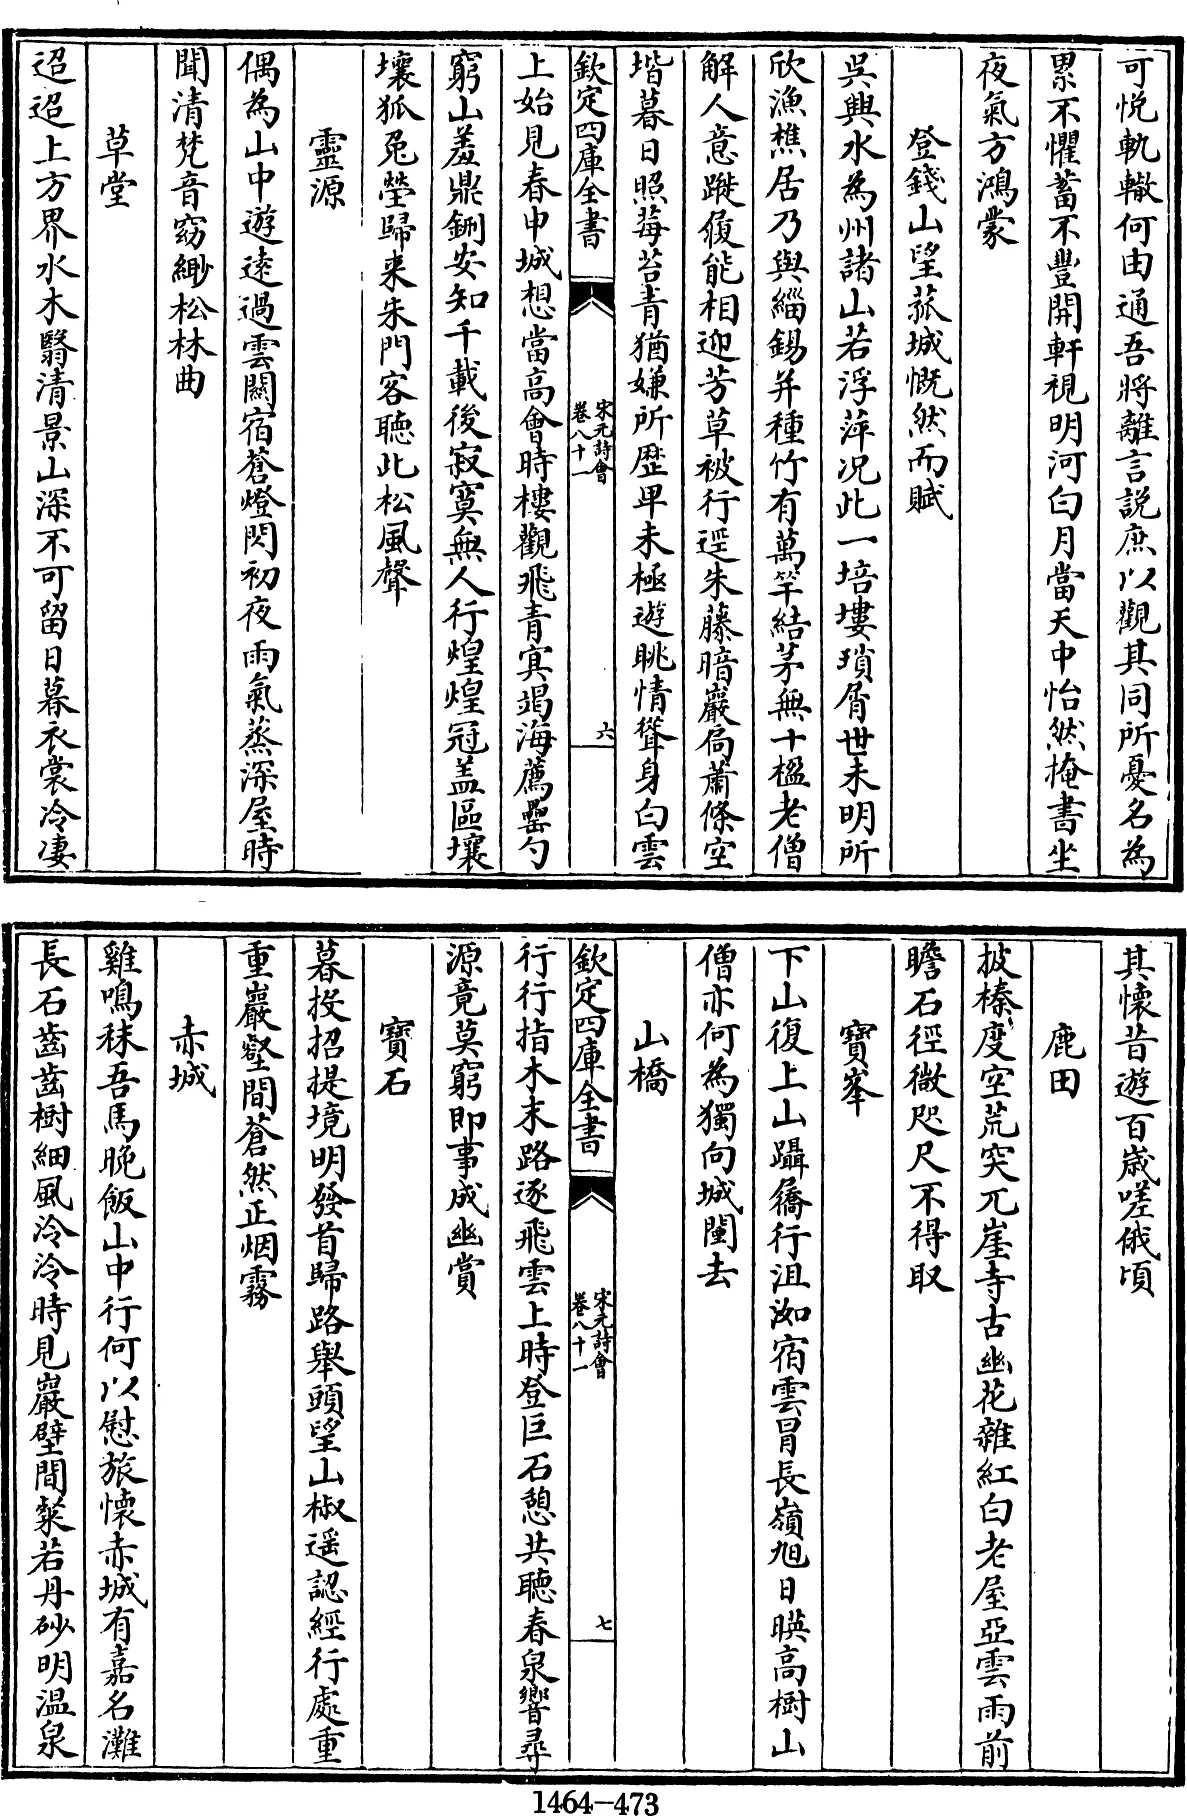 可悦軌轍何由通吾將離言說庶以觀其同所憂名為
累不懼蓄不豐開軒視明河白月當天中怡然掩書坐
夜氣方鴻蒙
登錢山望菰城慨然而賦
吳興水為州諸山若浮萍况此一培塿瑣屑世未明所
欣漁樵居乃與緇錫并種竹有萬竿結茅無十楹老僧
解人意蹤履能相迎芳草被行逕朱藤暗巖扃蕭條空
堦暮日照莓苔青猶嫌所歴卑未極遊眺情聳身白雲
欽定四庫全書
宋元詩會
卷八十一
六
上始見春申城想當高會時樓觀飛青冥竭海薦罍勺
窮山羞鼎鉶安知千載後寂寞無人行煌煌冠盖區壤
壤狐兔塋歸来朱門客聽此松風聲
靈源
偶為山中遊遠過雲關宿蒼燈閃初夜雨氣蒸深屋時
聞清梵音窈緲松林曲
草堂
迢迢上方界水木翳清景山深不可留日暮衣裳冷淒
其懷昔遊百歳嗟俄頃
鹿田
披榛度空荒突兀崖寺古幽花雜紅白老屋亞雲雨前
瞻石徑微咫尺不得取
寶峯
下山復上山躡屩行沮洳宿雲冒長嶺旭日暎高樹山
僧亦何為獨向城闉去
山橋
欽定四庫全書
宋元詩會
卷八十一
七
行行指木末路逐飛雲上時登巨石憩共聽春泉響尋
源竟莫窮即事成幽賞
寶石
暮投招提境明發首歸路舉頭望山椒遥認經行處重
重巖壑間蒼然正烟霧
赤城
雞鳴秣吾馬晚飯山中行何以慰旅懷赤城有嘉名灘
長石齒齒樹細風泠泠時見巖壁間粲若丹砂明温泉
1464-473